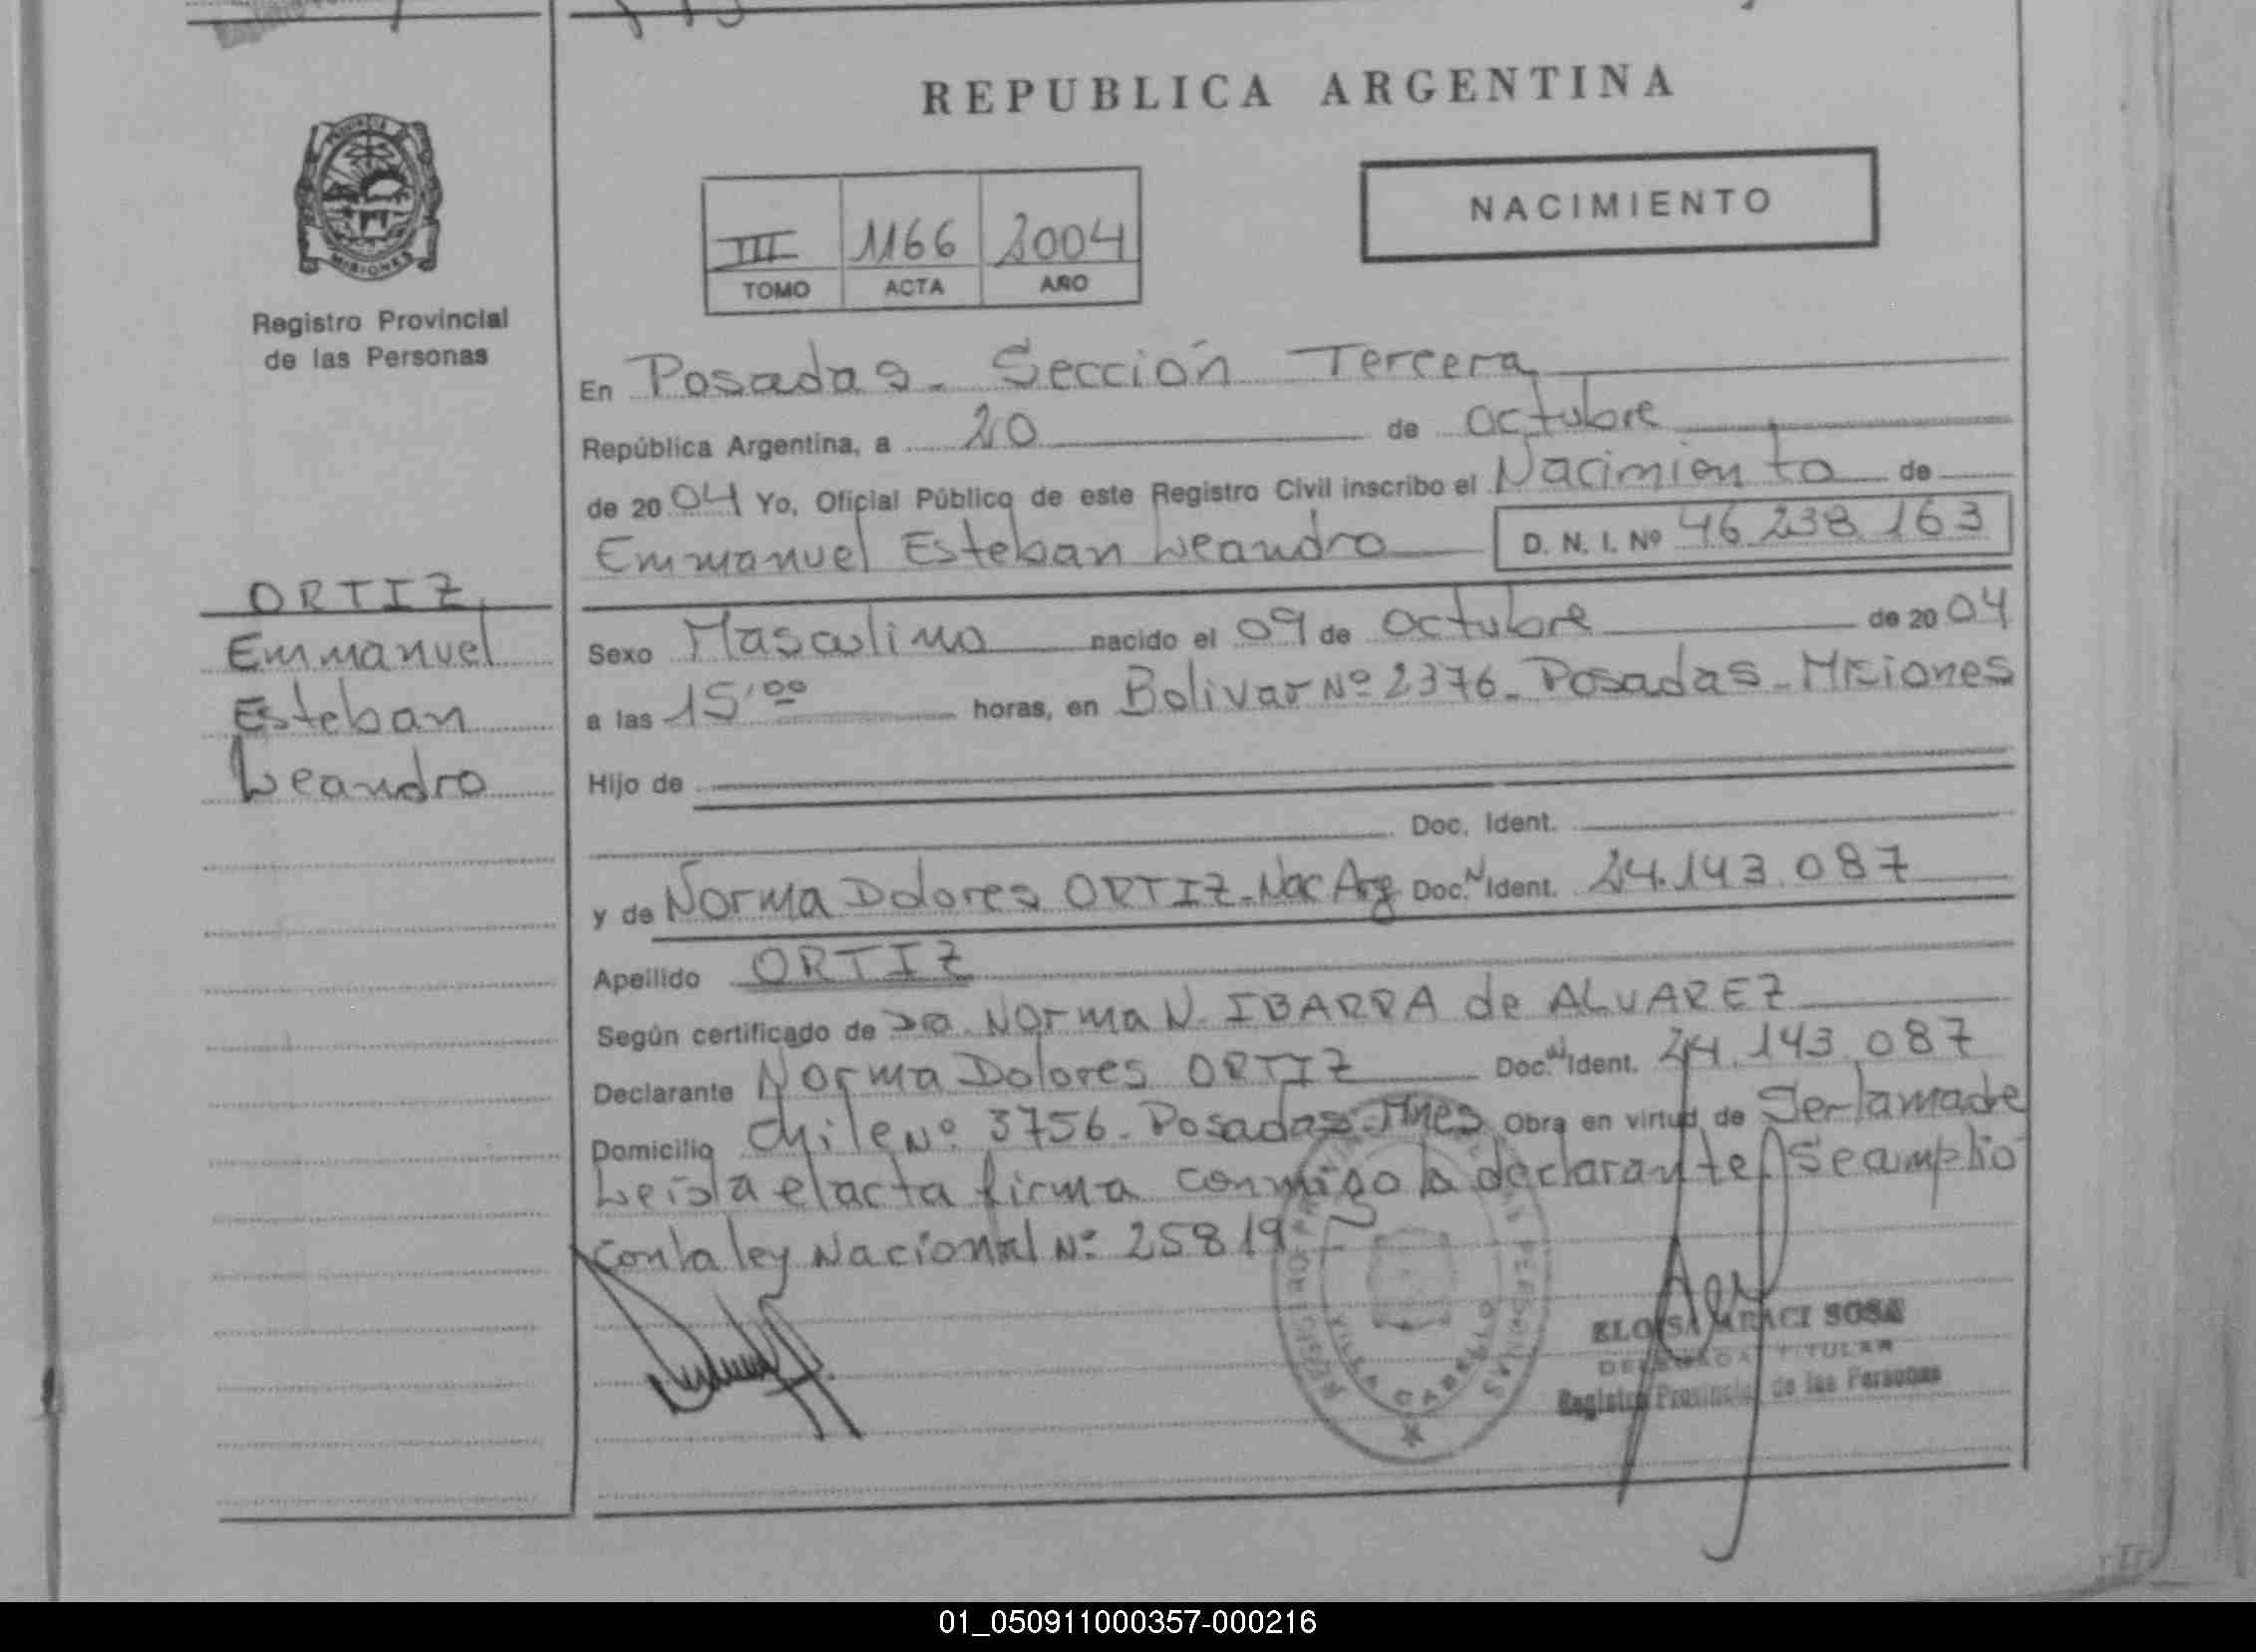 REPUBLICA ARGENTINA
PROVINCIA DE MISIONES
Registro Provincial
de las Personas
NACIMIENTO
III 1166 2004
TOMO ACTA AÑO
En Posadas. Sección Tercera
República Argentina, a 20 de octubre
de 2004 Yo, Oficial Público de este Registro Civil inscribo el Nacimiento de
Emmanuel Esteban Leandro D. N. I. Nº 46.238.163
ORTIZ,
Emmanuel
Esteban
Leandro
Sexo Masculino nacido el 09 de octubre de 2004
a las 15,00 horas, en Bolivar Nº 2376. Posadas - Misiones
Hijo de
Doc. Ident.
y de Norma Dolores ORTIZ. Nac Arg Doc. N Ident. 24.143.087
Apellido ORTIZ
Según certificado de Norma N. IBARRA de ALVAREZ
Declarante Norma Dolores ORTIZ Doc. N Ident. 24.143.087
Domicilio Chile Nº 3756. Posadas. Mnes Obra en virtud de Ser la madre
Leida el acta firma conmigo la declarante Se amplio
con la ley Nacional Nº 25819
ELOISA ARACI SOSA
DELEGADA TITULAR
Registro Provincial de las Personas
VILLA CABELLO
01_050911000357-000216